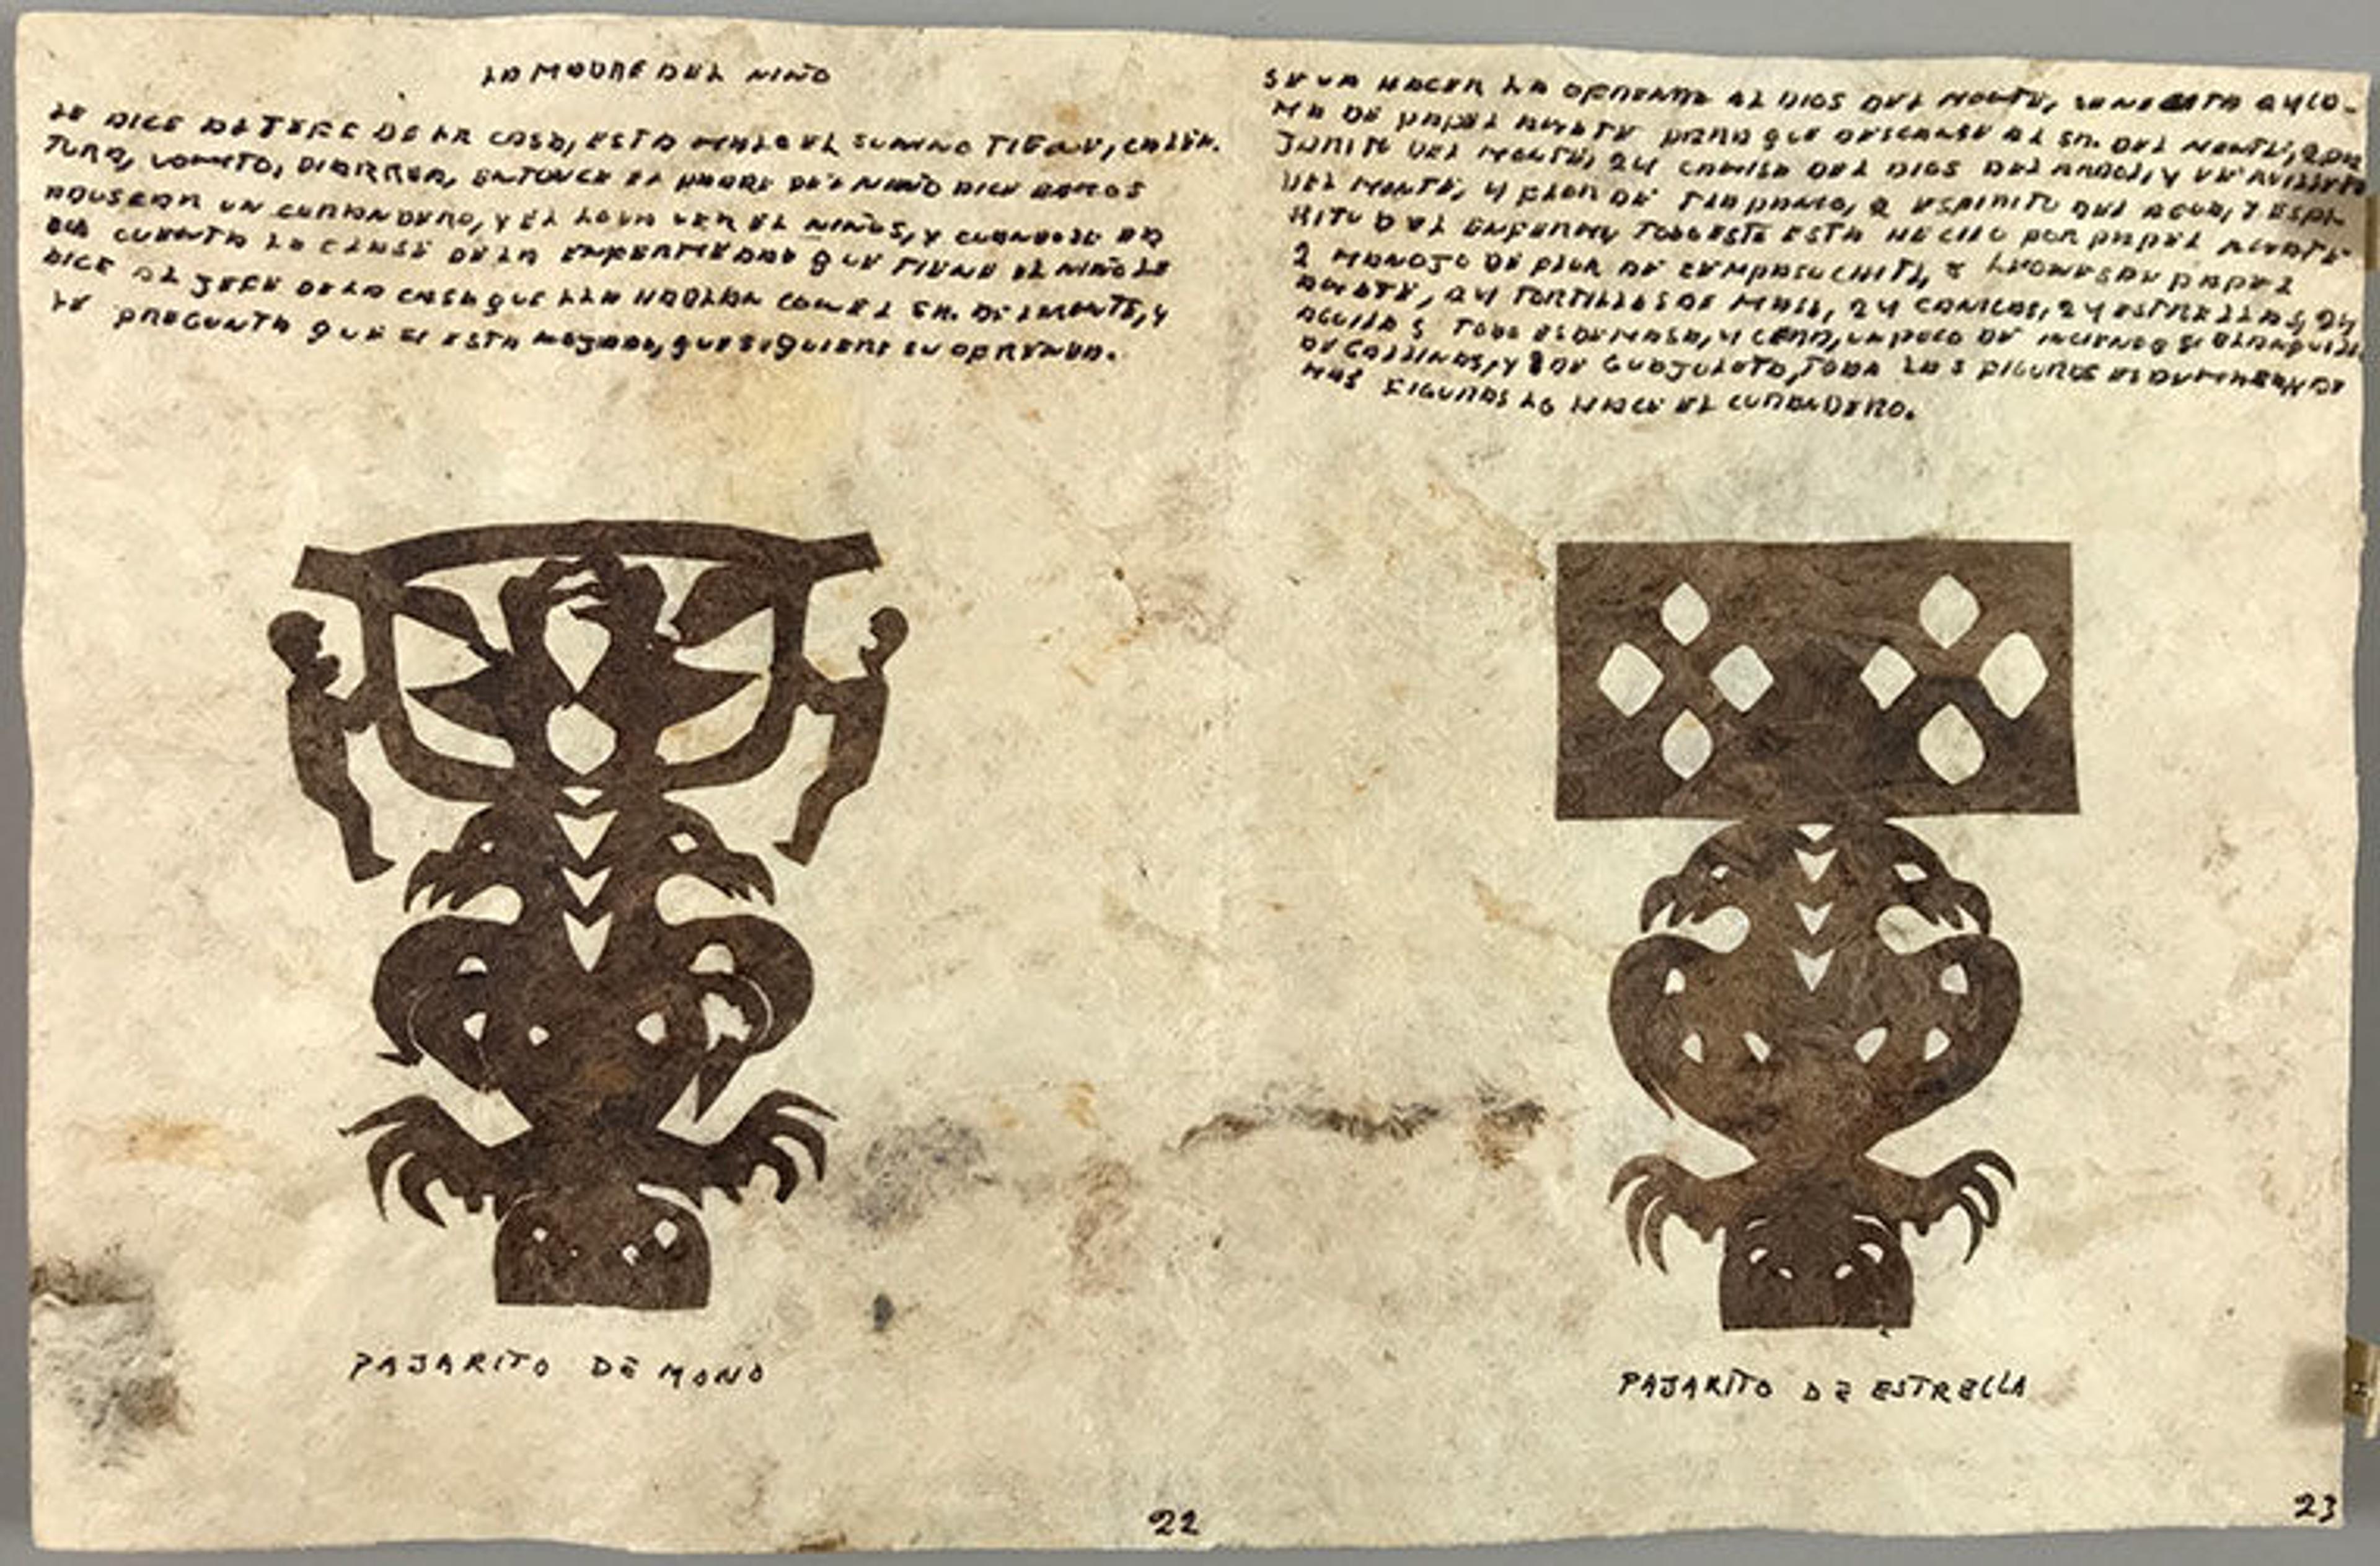 LA MADRE DEL NIÑO
LE DICE AL JEFE DE LA CASA, ESTA MALO EL SUNINO TIENE, CALEN.
TURA, VOMITO, DIARREA, ENTONCE EL PADRE DEL NIÑO DICE BAMOS
ABUSCAR UN CURANDERO, Y EL LOVA VER EL NIÑOS, Y CUANDO SE DA
CUENTA LA CLASE DE LA ENFERMEDAD QUE TIENE EL NIÑO LE
DICE AL JEFE DE LA CASA QUE HABLAR CON EL SR. DEL MONTE, Y
LE PREGUNTA QUE SI ESTA QUE SI QUIERE SU OFRENDA.
PAJARITO DE MONO
22
SE VA HACER LA OFRENDA AL DIOS DEL MONTE, 24 CA-
MA DE PAPEL AMATE PARA QUE DESCANSE AL SR. DEL MONTE,
DEL MONTE, 24 CAMISA DEL DIOS DEL Y
DEL MONTE, 4 FLOR DE ESPIRITU DEL AGUA, ESPI-
RITU DEL ENFERMO TODO ESTE ESTA HECHO POR PAPEL AMATE
2 MANOJO DE FLOR DE CEMPASUCHITL, PAPEL
AMATE, 24 TORTILLAS DE MASA, 24 CANICAS, 24 ESTRELLAS, 24
AGUILAS TODO ES DE MASA, 4 CERA, UN POCO DE
DE GALLINAS, Y DE GUAJOLOTE, TODA LAS FIGURAS
MAS FIGURAS LO HACE EL CURANDERO.
PAJARITO DE ESTRELLA
23